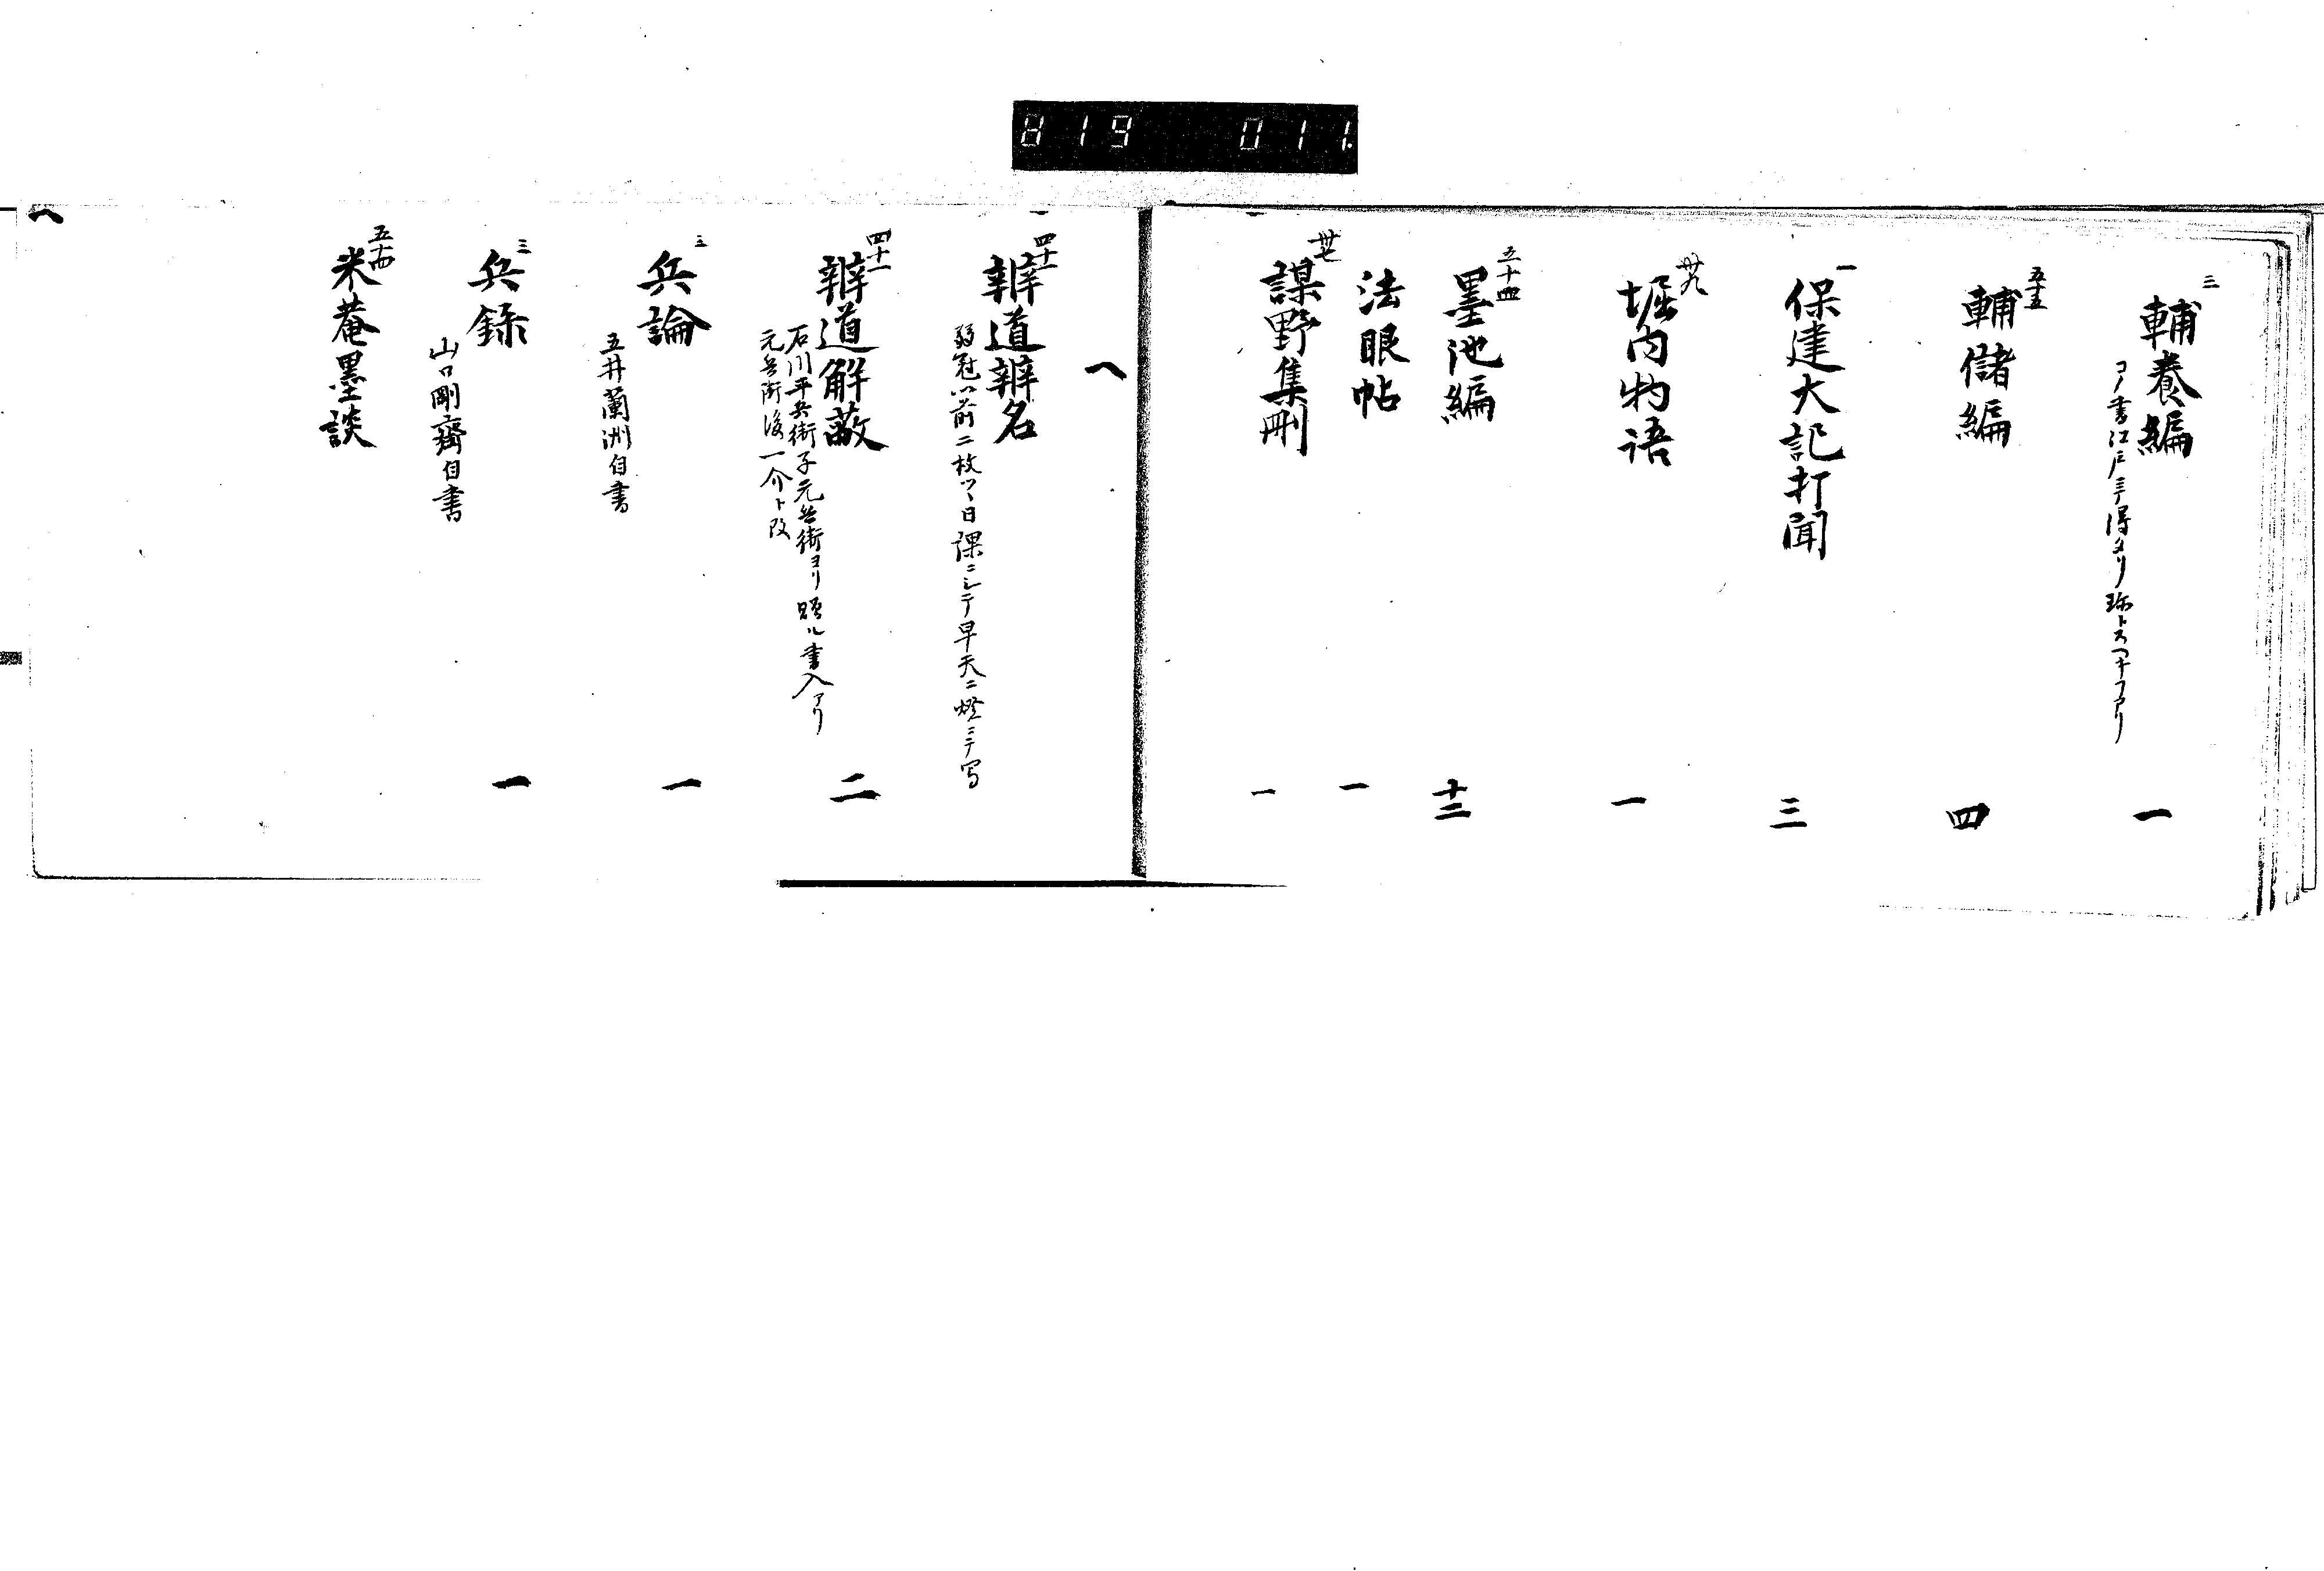 819 011.
三
輔養編 一
コノ書江戸ニテ得タリ珍トスヘキコアリ
五十五
輔儲編 四
一
保建大記打聞 三
卅九
堀内物语 一
五十四
墨池編 十二
法眼帖 一
卅七
謀野集刪 一
へ
四十一
辨道辨名
弱冠以前二枚ツヽ日課ニシテ早天ニ燈ニテ写
四十一
辨道解蔽 二
石川平兵衛子元兵衛ヨリ贈ル書入アリ
元兵衛後一介ト改
三
兵論 一
五井蘭洲自書
三
兵録 一
山口剛齋自書
五十四
米菴墨談
へ